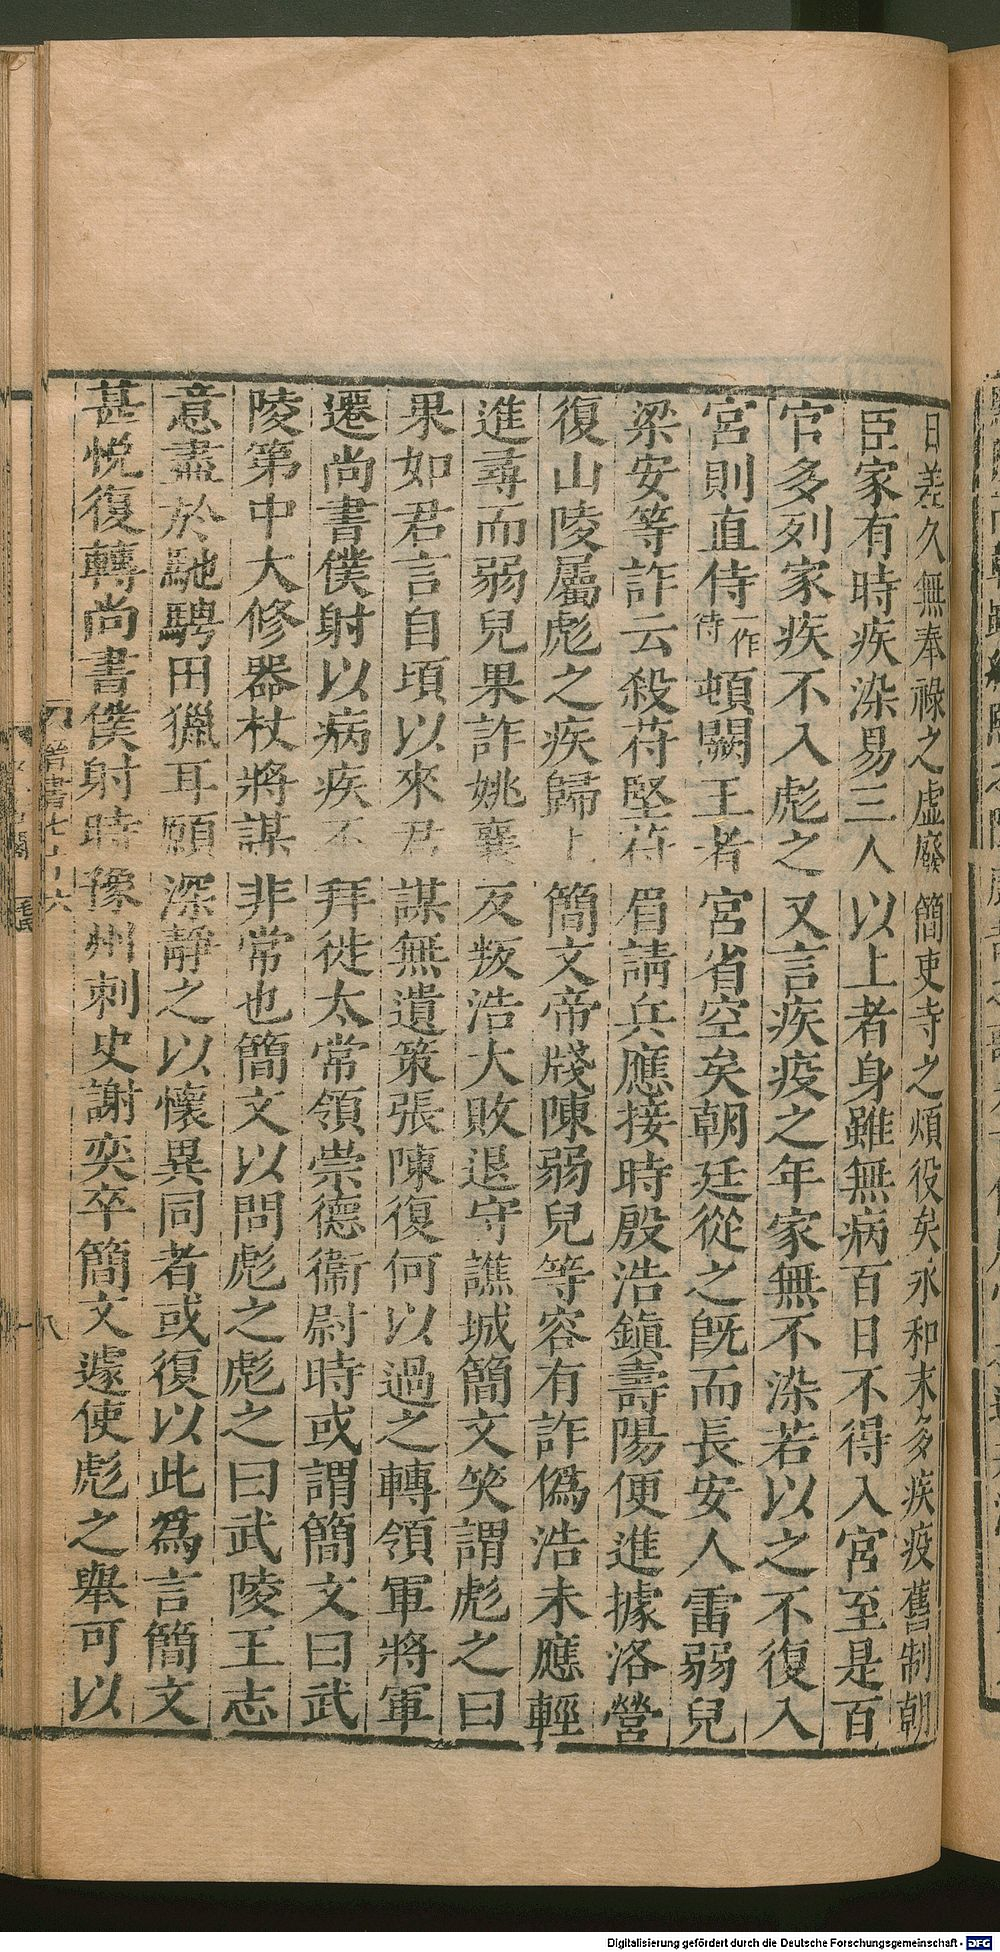 日差久無奉祿之虛廢簡吏寺之煩役矣永和末多疾疫舊制朝
臣家有時疾染易三人以上者身雖無病百日不得入宮至是百
官多列家疾不入彪之又言疾疫之年家無不染若以之不復入
宮則直侍一作待頓闕王者宮省空矣朝廷從之旣而長安人雷弱兒
梁安等詐云殺苻堅苻眉請兵應接時殷浩鎮壽陽便進據洛營
復山陵屬彪之疾歸上簡文帝牋陳弱兒等容有詐偽浩未應輕
進尋而弱兒果詐姚襄反叛浩大敗退守譙城簡文笑謂彪之曰
果如君言自頃以來君謀無遺策張陳復何以過之轉領軍將軍
遷尚書僕射以病疾不拜徙太常領崇德衞尉時或謂簡文曰武
陵第中大修器杖將謀非常也簡文以問彪之彪之曰武陵王志
意盡於馳騁田獵耳願深靜之以懷異同者或復以此爲言簡文
甚悅復轉尚書僕射時豫州刺史謝奕卒簡文遽使彪之舉可以
晉書七十六
毛氏
Digitalisierung gefördert durch die Deutsche Forschungsgemeinschaft - DFG